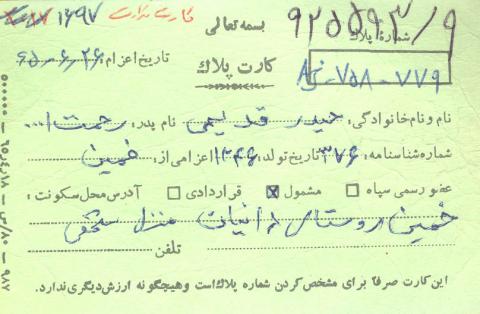 کارت ندارد ۱۶۹۷
بسمه تعالی
شماره پلاک ۹۲۵۵۹۳/۹
کارت پلاک
تاریخ اعزام: ۶۵-۶-۲۶
۷۵۸-۷۷۹
نام و نام خانوادگی: حیدر قدیمی نام پدر: رحمت ا...
شماره شناسنامه: ۳۷۶ تاریخ تولد: ۱۳۴۶ اعزامی از: خمین
عضو رسمی سپاه □ مشمول ☒ قراردادی □ آدرس محل سکونت:
خمین روستای منزل شخصی
تلفن
این کارت صرفاً برای مشخص کردن شماره پلاک است وهیچگونه ارزش دیگری ندارد.